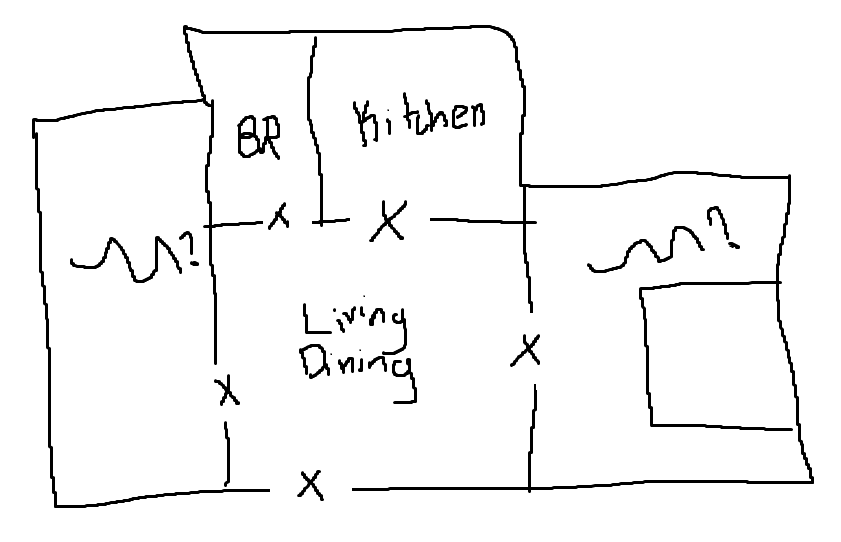 BR
Kitchen
?
?
Living
Dining
X
X
X
X
X